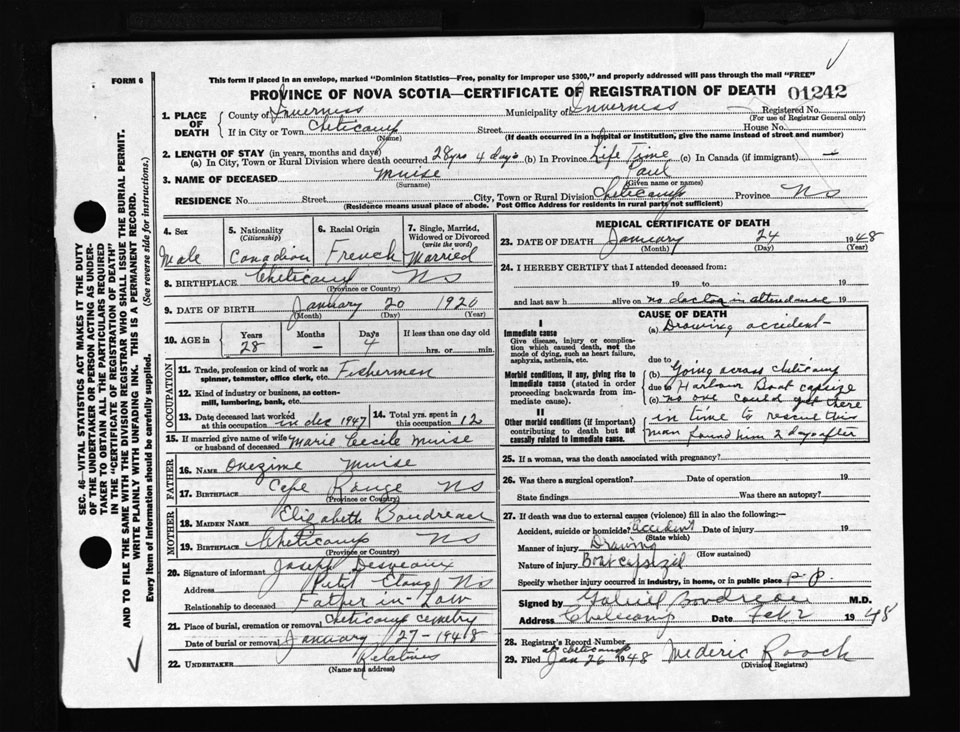 FORM 6
This form if placed in an envelope, marked "Dominion Statistics—Free, penalty for improper use $300," and properly addressed will pass through the mail "FREE"
PROVINCE OF NOVA SCOTIA—CERTIFICATE OF REGISTRATION OF DEATH 01242
1. PLACE OF DEATH County of Inverness Municipality of Inverness Registered No.
(For use of Registrar General only)
If in City or Town Cheticamp Street House No.
(Name) (If death occurred in a hospital or institution, give the name instead of street and number)
2. LENGTH OF STAY (in years, months and days)
(a) In City, Town or Rural Division where death occurred 28 yrs 4 days (b) In Province Life Time (c) In Canada (if immigrant) —
3. NAME OF DECEASED Muise Paul
(Surname) (Given name or names)
RESIDENCE No. Street City, Town or Rural Division Cheticamp Province NS
(Residence means usual place of abode. Post Office Address for residents in rural parts not sufficient)
4. Sex Male
5. Nationality (Citizenship) Canadian
6. Racial Origin French
7. Single, Married, Widowed or Divorced (write the word) Married
8. BIRTHPLACE Cheticamp NS
(Province or Country)
9. DATE OF BIRTH January 20 1920
(Month) (Day) (Year)
10. AGE in Years 28 Months — Days 4 If less than one day old hrs. or min.
OCCUPATION
11. Trade, profession or kind of work as spinner, teamster, office clerk, etc. Fishermen
12. Kind of industry or business, as cotton-mill, lumbering, bank, etc.
13. Date deceased last worked at this occupation in dec 1947
14. Total yrs. spent in this occupation 12
15. If married give name of wife or husband of deceased Marie Cecile Muise
FATHER
16. NAME Onezime Muise
17. BIRTHPLACE Cape Rouge NS
(Province or Country)
MOTHER
18. MAIDEN NAME Elizabeth Boudreau
19. BIRTHPLACE Cheticamp NS
(Province or Country)
20. Signature of informant Joseph Desveaux
Address Petit Etang NS
Relationship to deceased Father in-Law
21. Place of burial, cremation or removal Cheticamp cemetry
Date of burial or removal January 27-1948
22. UNDERTAKER Relatives
(Name and address)
MEDICAL CERTIFICATE OF DEATH
23. DATE OF DEATH January 24 1948
(Month) (Day) (Year)
24. I HEREBY CERTIFY that I attended deceased from:
19 to 19
and last saw h alive on no doctor in attendance 19
CAUSE OF DEATH
I
Immediate cause
Give disease, injury or complication which caused death, not the mode of dying, such as heart failure, asphyxia, asthenia, etc.
(a) Drawing accident-
due to
Morbid conditions, if any, giving rise to immediate cause (stated in order proceeding backwards from immediate cause).
(b) Going across cheticamp
due to Harbour Boat capsize
(c) no one could get there
II
Other morbid conditions (if important) contributing to death but not causally related to immediate cause.
in time to rescue this
man found him 2 days after
25. If a woman, was the death associated with pregnancy?
26. Was there a surgical operation? Date of operation 19
State findings Was there an autopsy?
27. If death was due to external causes (violence) fill in also the following:—
Accident, suicide or homicide? accident Date of injury 19
(State which)
Manner of injury Drawing
(How sustained)
Nature of injury Boat capsizel
Specify whether injury occurred in industry, in home, or in public place P.P.
Signed by Gabriel Boudreau M.D.
Address Cheticamp Date Feb 2 1948
28. Registrar's Record Number
at cheticamp
29. Filed Jan 26 1948 Mederic Roach
(Division Registrar)
SEC. 46—VITAL STATISTICS ACT MAKES IT THE DUTY
OF THE UNDERTAKER OR PERSON ACTING AS UNDER-
TAKER TO OBTAIN ALL THE PARTICULARS REQUIRED
IN THE "CERTIFICATE OF REGISTRATION OF DEATH"
AND TO FILE THE SAME WITH THE DIVISION REGISTRAR WHO SHALL ISSUE THE BURIAL PERMIT.
WRITE PLAINLY WITH UNFADING INK. THIS IS A PERMANENT RECORD.
Every item of information should be carefully supplied. (See reverse side for instructions.)